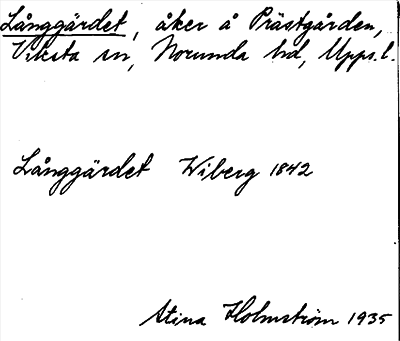 Långgärdet, åker å Prästgården,
Viksta sn, Norunda hd, Upps.l.
Långgärdet Wiberg 1842
Stina Holmström 1935